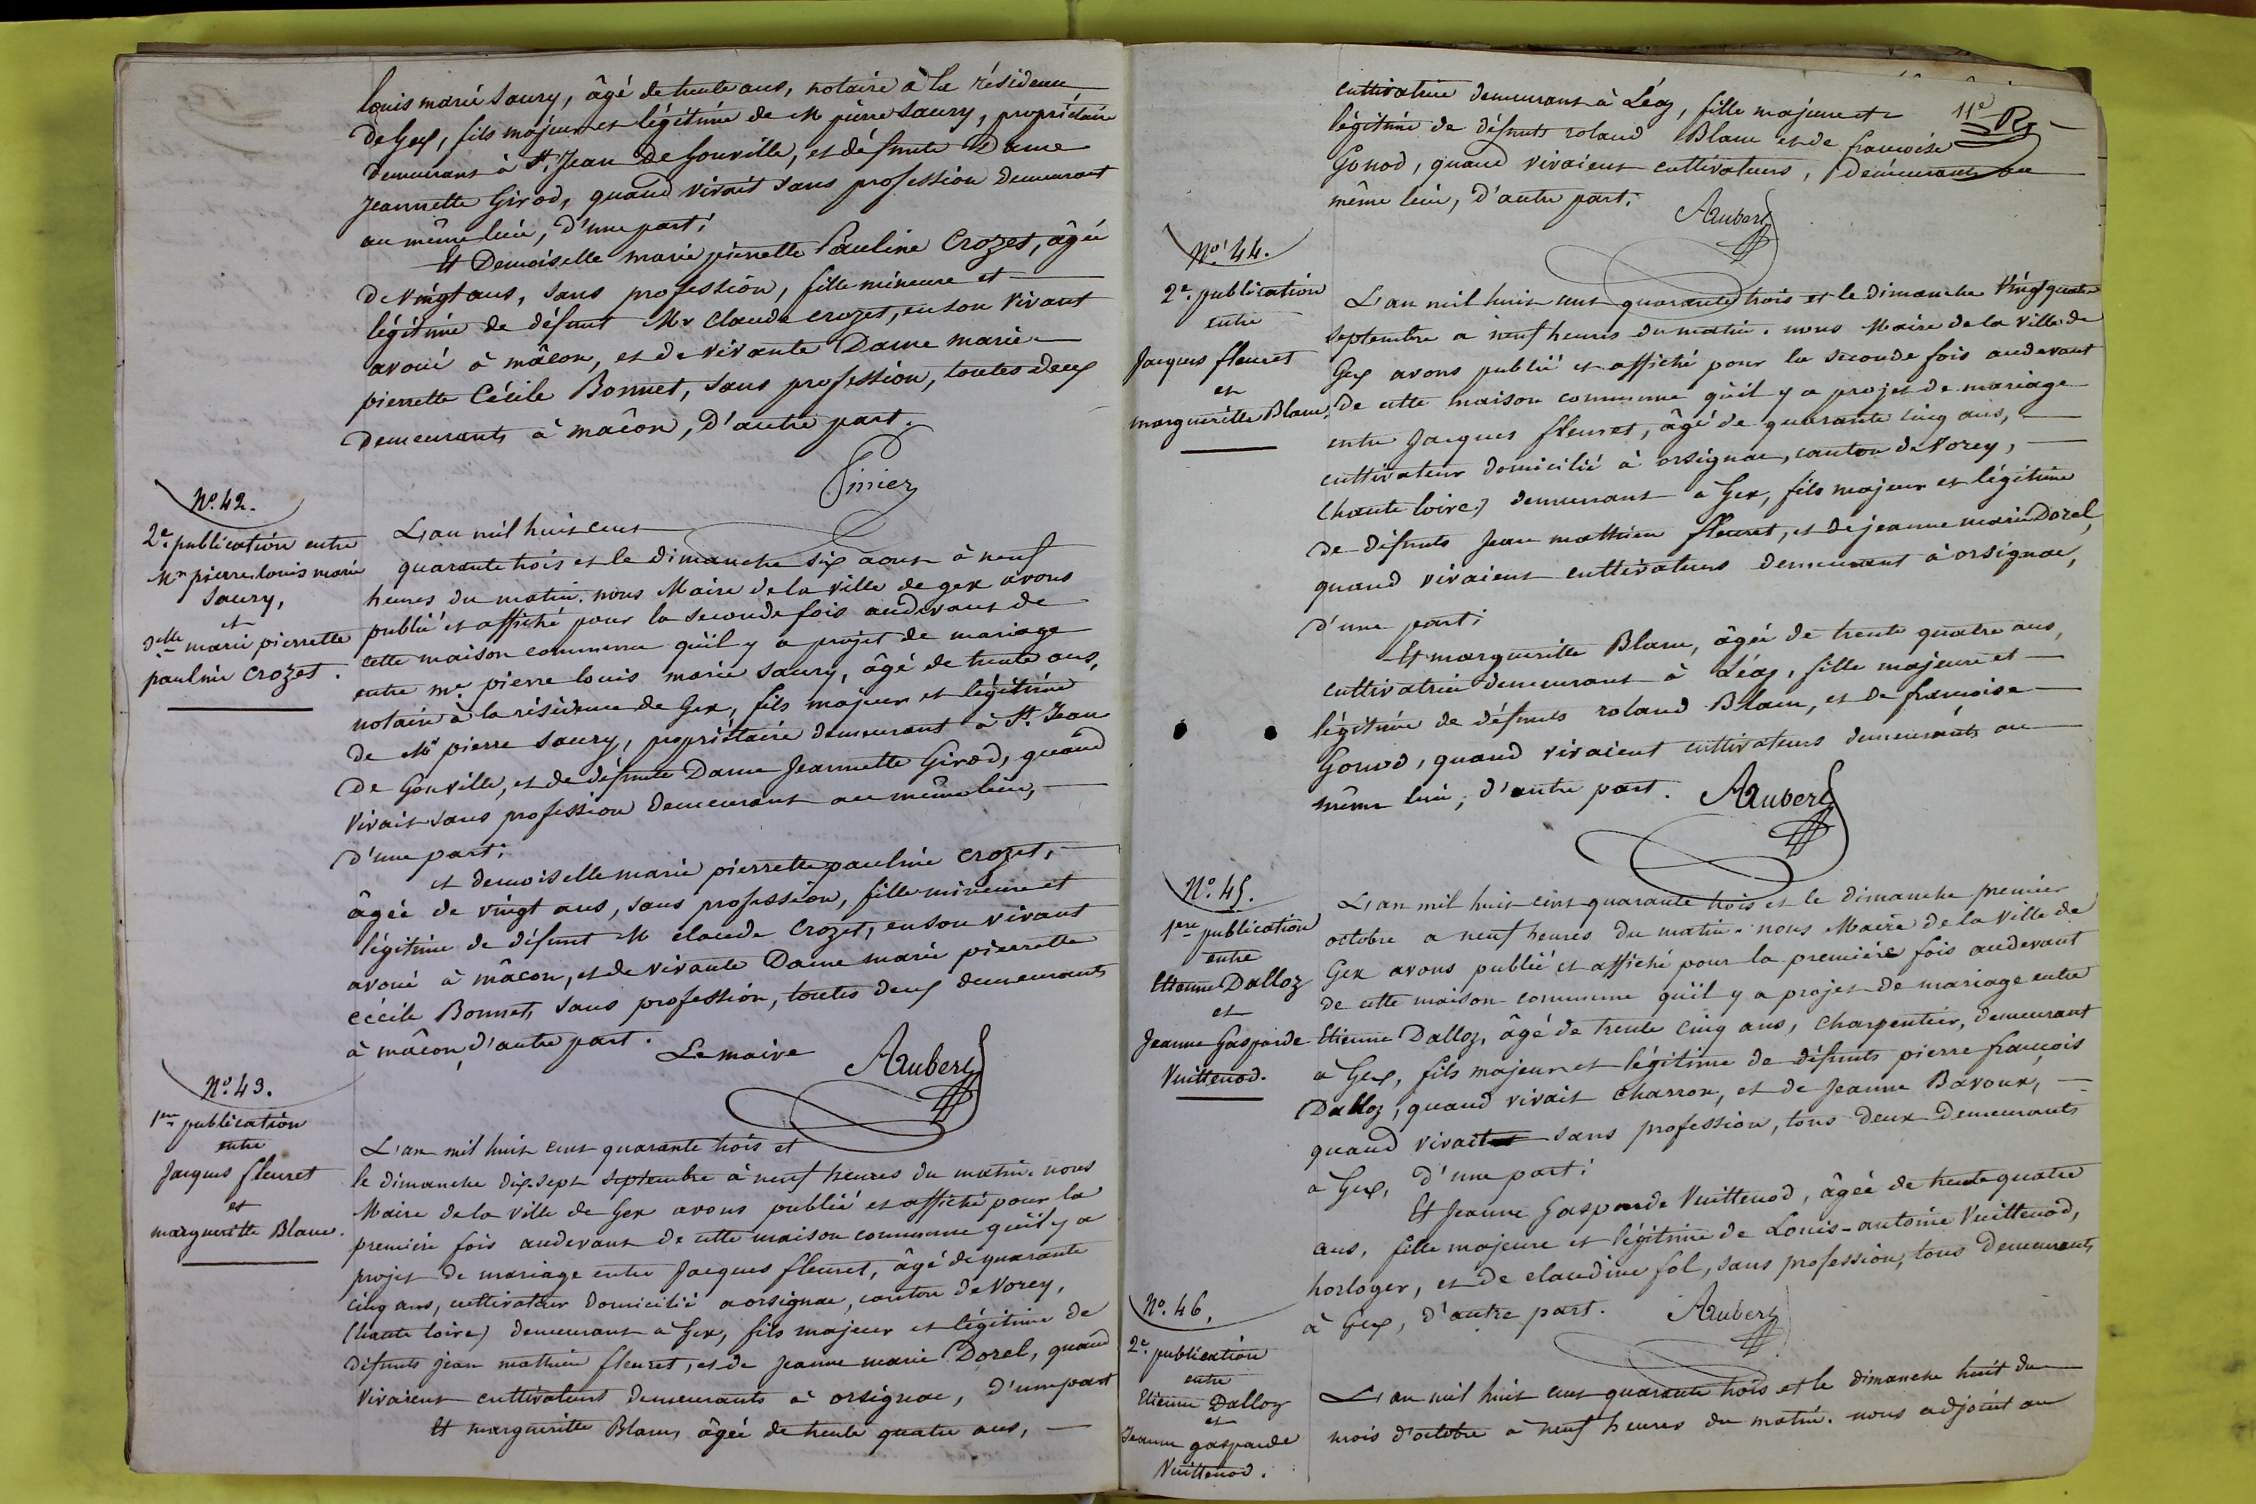 louis marie Saury, âgé de trente ans, notaire à la résidence
de Gex, fils majeur et légitime de M pierre Saury, propriétaire
demeurant à St. Jean de Gonville, et défunte Dame
Jeannette Girod, quand vivait sans profession demeurant
au même lieu, d'une part;
Et Demoiselle marie pierrette Pauline Crozet, âgée
de vingt ans, sans profession, fille mineure et
légitime de défunt Mr Claude Crozet, en son vivant
avoué à mâcon, et de vivante Dame marie
pierrette Cécile Bonnet, sans profession, toutes deux
demeurants à mâcon, d'autre part.
No. 42.
2e. publication entre
Me pierre louis marie
Saury,
et
Delle marie pierrette
pauline Crozet.
L'an mil huit cent
quarante trois et le dimanche six août à neuf
heures du matin. nous Maire de la ville de gex avons
publié et affiché pour la seconde fois audevant de
cette maison commune qu'il y a projet de mariage
entre me. pierre louis marie Saury, âgé de trente ans,
notaire à la résidence de Gex, fils majeur et légitime
de Mr pierre Saury, propriétaire demeurant à St. Jean
de Gonville, et de défunte Dame Jeannette Girod, quand
vivait sans profession demeurant au même lieu,
d'une part;
et demoiselle marie pierrette pauline Crozet,
âgée de vingt ans, sans profession, fille mineure et
légitime de défunt M claude Crozet, en son vivant
avoué à mâcon, et de vivante Dame marie pierrette
Cécile Bonnet, sans profession, toutes deux demeurants
à mâcon, d'autre part.
Le maire Aubert
No. 43.
1ere publication
entre
Jacques fleuret
et
marguerite Blanc.
L'an mil huit cent quarante trois et
le dimanche dix sept septembre à neuf heures du matin. nous
Maire de la ville de Gex avons publié et affiché pour la
première fois audevant de cette maison commune qu'il y a
projet de mariage entre Jacques fleuret, âgé de quarante
cinq ans, cultivateur domicilié à orsignac, canton de Vorey,
(haute loire) demeurant à Gex, fils majeur et légitime de
défunts jean mathieu fleuret, et de jeanne marie Dorel, quand
vivaient cultivateurs demeurants à orsignac, d'une part
Et marguerite Blanc, âgée de trente quatre ans,
11e
cultivatrice demeurant à Léaz, fille majeure et
légitime de défunts roland Blanc et de francoise
Gonod, quand vivaient cultivateurs, demeurants au
même lieu, d'autre part;
Aubert
No. 44.
2e. publication
entre
Jacques fleuret
et
marguerite Blanc.
L'an mil huit cent quarante trois et le dimanche vingt quatre
septembre a neuf heures du matin. nous Maire de la ville de
Gex avons publié et affiché pour la seconde fois audevant
de cette maison commune qu'il y a projet de mariage
entre Jacques fleuret, âgé de quarante cinq ans,
cultivateur domicilié à orsignac, canton de Vorey,
(haute loire) demeurant a Gex, fils majeur et légitime
de défunts Jean mathieu fleuret, et de jeanne marie Dorel,
quand vivaient cultivateurs demeurant à orsignac,
d'une part;
Et marguerite Blanc, âgée de trente quatre ans,
cultivatrice demeurant à Léaz, fille majeure et
légitime de défunts roland Blanc, et de francoise
Gonod, quand vivaient cultivateurs demeurants au
même lieu, d'autre part. Aubert
No. 45.
1ere publication
entre
Etienne Dalloz
et
Jeanne Gasparde
Vuittenod.
L'an mil huit cent quarante trois et le dimanche premier
octobre a neuf heures du matin. nous Maire de la ville de
Gex avons publié et affiché pour la première fois audevant
de cette maison commune qu'il y a projet de mariage entre
Etienne Dalloz, âgé de trente cinq ans, charpentier, demeurant
a Gex, fils majeur et légitime de défunts pierre francois
Dalloz, quand vivait charron, et de Jeanne Bavoux,
quand vivait sans profession, tous deux demeurants
a Gex, d'une part;
Et Jeanne Gasparde Vuittenod, âgée de trente quatre
ans, fille majeure et légitime de Louis-antoine Vuittenod,
horloger, et de claudine fol, sans profession, tous demeurants
à Gex, d'autre part. Aubert
No. 46.
2e. publication
entre
Etienne Dalloz
et
Jeanne gasparde
Vuittenod.
L'an mil huit cent quarante trois et le dimanche huit du
mois d'octobre a neuf heures du matin. nous adjoint au